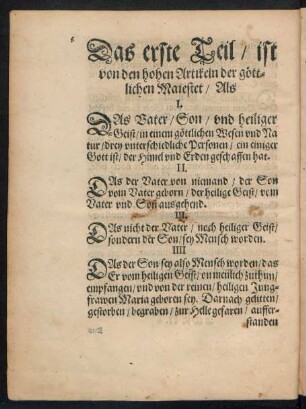 Das erste Teil / ist
von den hohen Artikeln der gött-
lichen Maiestet / Als
I.
DAs Vater / Son / vnd heiliger
Geist / in einem göttlichen Wesen vnd Na
tur / drey vnterschiedliche Personen / ein einiger
Gott ist / der Himel vnd Erden geschaffen hat.
II.
DAs der Vater von niemand / der Son
vom Vater geborn / der heilige Geist / vom
Vater vnd Son ausgehend.
III.
DAs nicht der Vater / noch heiliger Geist /
sondern der Son / sey Mensch worden.
IIII
DAs der Son sey also Mensch worden / das
Er vom heiligen Geist / on menlich zuthun /
empfangen / vnd von der reinen / heiligen Jung-
frawen Maria geboren sey. Darnach gelitten /
gestorben / begraben / zur Helle gefaren / aufferstanden